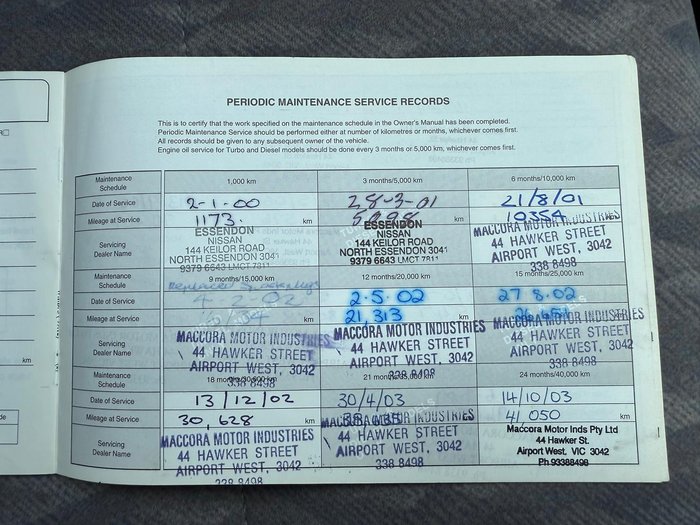 PERIODIC MAINTENANCE SERVICE RECORDS
This is to certify that the work specified on the maintenance schedule in the Owner's Manual has been completed.
Periodic Maintenance Service should be performed either at number of kilometres or months, whichever comes first.
All records should be given to any subsequent owner of the vehicle.
Engine oil service for Turbo and Diesel models should be done every 3 months or 5,000 km, whichever comes first.
Maintenance Schedule 1,000 km 3 months/5,000 km 6 months/10,000 km
Date of Service 2-1-00 28-3-01 21/8/01
Mileage at Service 1173. km km 10354 km
Servicing Dealer Name
ESSENDON
NISSAN
144 KEILOR ROAD
NORTH ESSENDON 3041
9379 6643 LMCT 7811
ESSENDON
NISSAN
144 KEILOR ROAD
NORTH ESSENDON 3041
9379 6643 LMCT 7811
MACCORA MOTOR INDUSTRIES
44 HAWKER STREET
AIRPORT WEST, 3042
338 8498
Maintenance Schedule 9 months/15,000 km 12 months/20,000 km 15 months/25,000 km
Replaced
Date of Service 4-2-02 2-5-02 27 8.02
Mileage at Service km 21,313 km km
Servicing Dealer Name
MACCORA MOTOR INDUSTRIES
44 HAWKER STREET
AIRPORT WEST, 3042
338 8498
MACCORA MOTOR INDUSTRIES
44 HAWKER STREET
AIRPORT WEST, 3042
338 8498
MACCORA MOTOR INDUSTRIES
44 HAWKER STREET
AIRPORT WEST, 3042
338 8498
Maintenance Schedule 18 months/30,000 km 21 months/35,000 km 24 months/40,000 km
Date of Service 13/12/02 30/4/03 14/10/03
Mileage at Service 30,628 km km 41 050 km
Servicing Dealer Name
MACCORA MOTOR INDUSTRIES
44 HAWKER STREET
AIRPORT WEST, 3042
338 8498
MACCORA MOTOR INDUSTRIES
44 HAWKER STREET
AIRPORT WEST, 3042
338 8498
Maccora Motor Inds Pty Ltd
44 Hawker St.
Airport West, VIC 3042
Ph.93388498
km